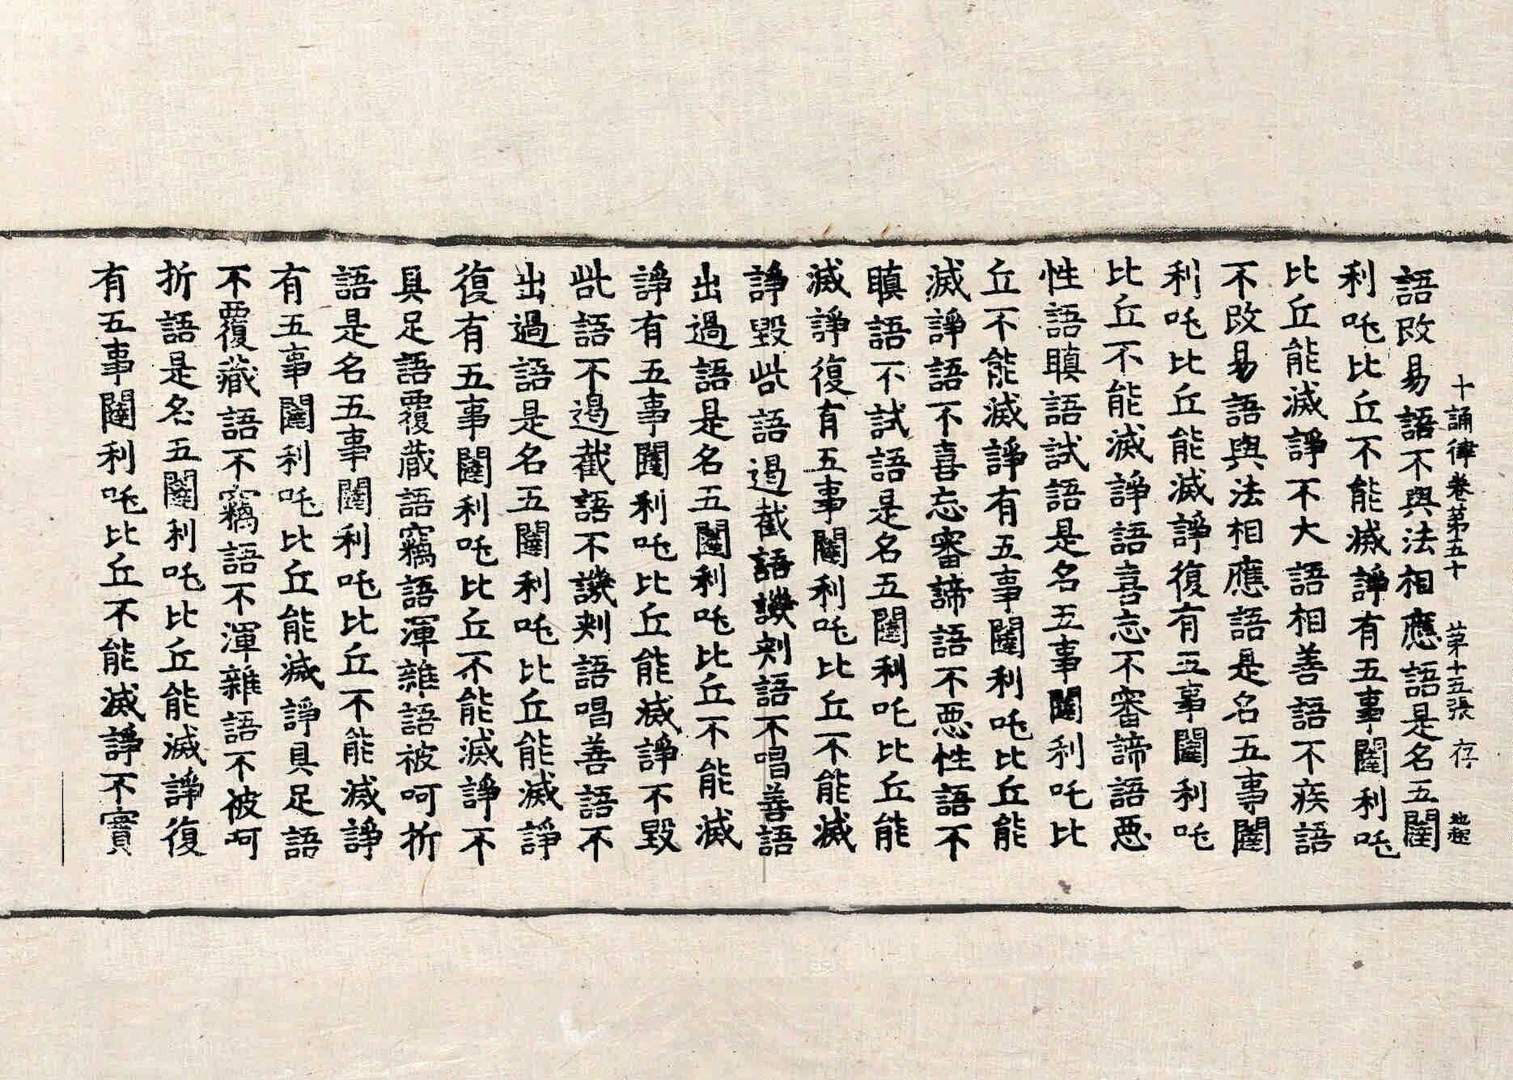 十誦律卷第五十　第十五張　存
語改易語不與法相應語是名五闥
利吒比丘不能滅諍有五事闥利吒
比丘能滅諍不大語相善語不疾語
不改易語與法相應語是名五事闥
利吒比丘能滅諍復有五事闥利吒
比丘不能滅諍語喜忘不審諦語惡
性語瞋語試語是名五事闥利吒比
丘不能滅諍有五事闥利吒比丘能
滅諍語不喜忘審諦語不惡性語不
瞋語不試語是名五闥利吒比丘能
滅諍復有五事闥利吒比丘不能滅
諍毀呰語遏截語譏刾語不唱善語
出過語是名五闥利吒比丘不能滅
諍有五事闥利吒比丘能滅諍不毀
呰語不遏截語不譏刾語唱善語不
出過語是名五闥利吒比丘能滅諍
復有五事闥利吒比丘不能滅諍不
具足語覆藏語竊語渾雜語被呵折
語是名五事闥利吒比丘不能滅諍
有五事闥利吒比丘能滅諍具足語
不覆藏語不竊語不渾雜語不被呵
折語是名五闥利吒比丘能滅諍復
有五事闥利吒比丘不能滅諍不實